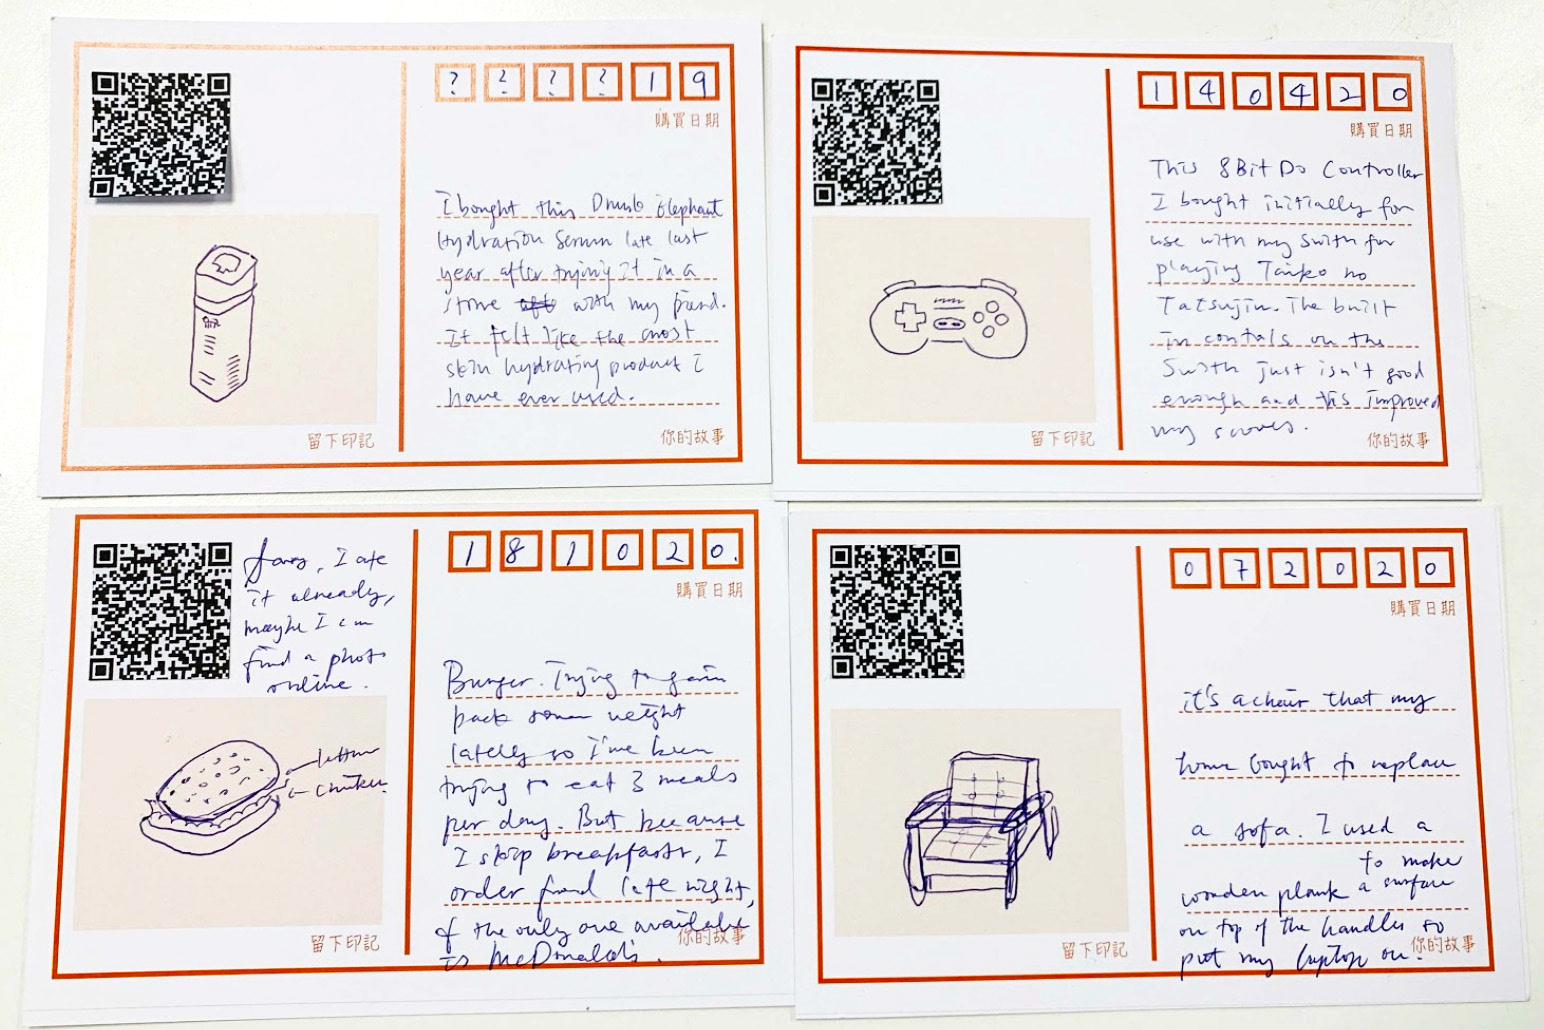 ? ? ? ? 1 9
購買日期
I bought this Drunk Elephant
Hydration Serum late last
year after trying it in a
store with my friend.
It felt like the most
skin hydrating product I
have ever used.
留下印記
你的故事
1 4 0 4 2 0
購買日期
This 8BitDo Controller
I bought initially for
use with my Swith for
playing Taiko no
Tatsujin. The built
in contals on the
Swith just isn't good
enough and this improved
my scores.
留下印記
你的故事
Sorry, I ate
it already,
maybe I can
find a photo
online.
1 8 1 0 2 0.
購買日期
Burger. Trying to gain
back some weight
lately so I've been
trying to eat 3 meals
per day. But because
I skip breakfasts, I
order food late night,
& the only one available
is McDonald's.
lettuce
chicken
留下印記
你的故事
0 7 2 0 2 0
購買日期
it's a chair that my
home bought to replace
a sofa. I used a
wooden plank to make a surface
on top of the handles to
put my laptop on.
留下印記
你的故事